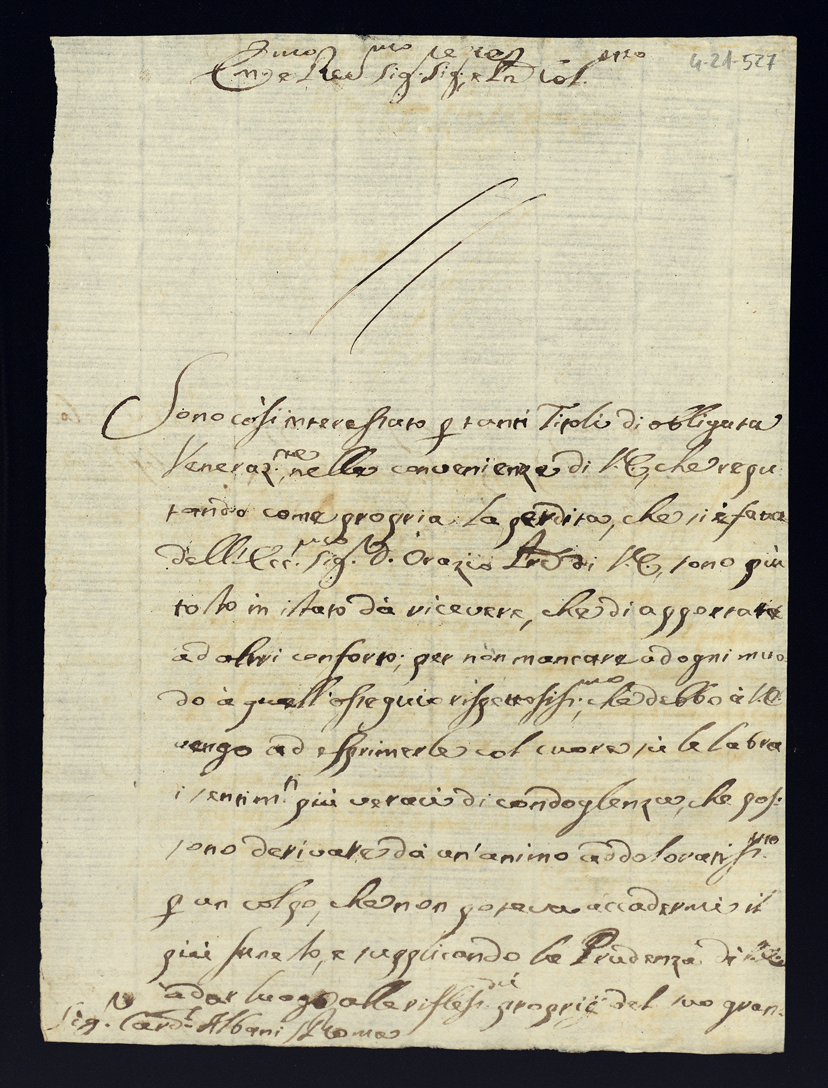 4-21-527
Em.mo e Rev.mo Sig.re Sig.r, e P.ron Col.mo
Sono così interessato p tanti Titoli di obligata
Veneraz.ne, nelle convenienze di V.E., che repu
tando come propria la perdita, che si è fatta
dell'Ecc.mo Sig.r D. Orazio di V.E., sono più
tosto in istato dà ricevere, che di apportare
ad altri conforto; per non mancare ad ogni mo
do à quell'ossequio rispettosiss.mo, che debbo à V.E.
vengo ad esprimerle col cuore sù le labra
i sentim.ti più veraci di condoglienza, che pos:
sono derivare dà un'animo addoloratiss.mo
p un colpo, che non poteva accadermi il
più funesto, e supplicando la Prudenza di
à dar luogo alle rifless.ni proprie del suo gran
Sig.r Card.l Albani Roma